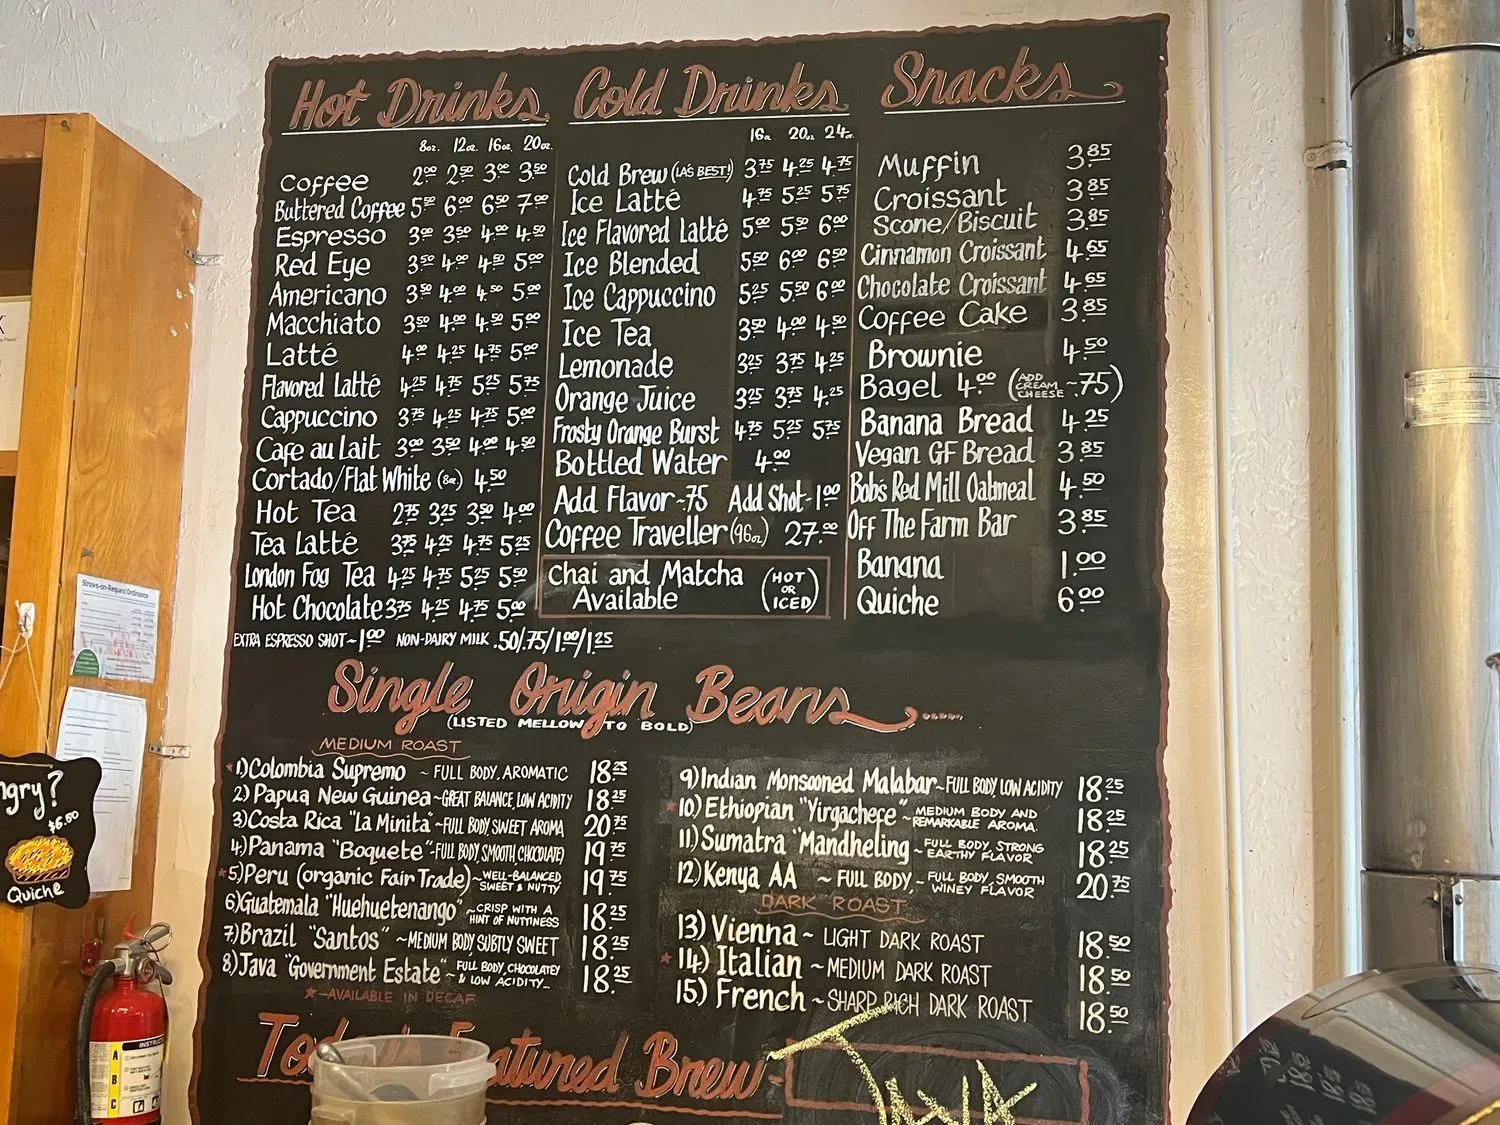 Hot Drinks
8oz. 12oz. 16oz. 20oz.
Coffee 2.00 2.50 3.00 3.50
Buttered Coffee 5.50 6.00 6.50 7.00
Espresso 3.00 3.50 4.00 4.50
Red Eye 3.50 4.00 4.50 5.00
Americano 3.50 4.00 4.50 5.00
Macchiato 3.50 4.00 4.50 5.00
Latté 4.00 4.25 4.75 5.00
Flavored Latté 4.25 4.75 5.25 5.75
Cappuccino 3.75 4.25 4.75 5.00
Cafe au Lait 3.00 3.50 4.00 4.50
Cortado/Flat White (8oz.) 4.50
Hot Tea 2.75 3.25 3.50 4.00
Tea Latté 3.75 4.25 4.75 5.25
London Fog Tea 4.25 4.75 5.25 5.50
Hot Chocolate 3.75 4.25 4.75 5.00
EXTRA ESPRESSO SHOT~1.00 NON-DAIRY MILK .50/.75/1.00/1.25
Cold Drinks
16oz. 20oz. 24oz.
Cold Brew (LA'S BEST!) 3.75 4.25 4.75
Ice Latté 4.75 5.25 5.75
Ice Flavored Latté 5.00 5.50 6.00
Ice Blended 5.50 6.00 6.50
Ice Cappuccino 5.25 5.50 6.00
Ice Tea 3.50 4.00 4.50
Lemonade 3.25 3.75 4.25
Orange Juice 3.25 3.75 4.25
Frosty Orange Burst 4.75 5.25 5.75
Bottled Water 4.00
Add Flavor~.75 Add Shot~1.00
Coffee Traveller (96oz.) 27.00
Chai and Matcha (HOT
OR
ICED)
Available
Snacks
Muffin 3.85
Croissant 3.85
Scone/Biscuit 3.85
Cinnamon Croissant 4.65
Chocolate Croissant 4.65
Coffee Cake 3.85
Brownie 4.50
Bagel 4.00 (ADD CREAM CHEESE ~.75)
Banana Bread 4.25
Vegan GF Bread 3.85
Bob's Red Mill Oatmeal 4.50
Off The Farm Bar 3.85
Banana 1.00
Quiche 6.00
Single Origin Beans
(LISTED MELLOW TO BOLD)
MEDIUM ROAST
*1) Colombia Supremo ~ FULL BODY, AROMATIC 18.25
2) Papua New Guinea ~ GREAT BALANCE, LOW ACIDITY 18.25
3) Costa Rica "La Minita" ~ FULL BODY, SWEET AROMA 20.75
4) Panama "Boquete" ~ FULL BODY, SMOOTH, CHOCOLATEY 19.75
*5) Peru (organic Fair Trade) ~ WELL-BALANCED SWEET & NUTTY 19.75
6) Guatemala "Huehuetenango" ~ CRISP WITH A HINT OF NUTTINESS 18.25
7) Brazil "Santos" ~ MEDIUM BODY, SUBTLY SWEET 18.25
8) Java "Government Estate" ~ FULL BODY, CHOCOLATEY & LOW ACIDITY 18.25
*-AVAILABLE IN DECAF
9) Indian Monsooned Malabar ~ FULL BODY, LOW ACIDITY 18.25
*10) Ethiopian "Yirgachefe" ~ MEDIUM BODY AND REMARKABLE AROMA. 18.25
11) Sumatra "Mandheling ~ FULL BODY, STRONG EARTHY FLAVOR 18.25
12) Kenya AA ~ FULL BODY, ~ FULL BODY, SMOOTH WINEY FLAVOR 20.75
DARK ROAST
13) Vienna ~ LIGHT DARK ROAST 18.50
*14) Italian ~ MEDIUM DARK ROAST 18.50
15) French ~ SHARP, RICH DARK ROAST 18.50
Featured Brew~
JAVA
Straws-on-Request Ordinance
ngry?
$6.50
Quiche
INSTRUC
A
B
C